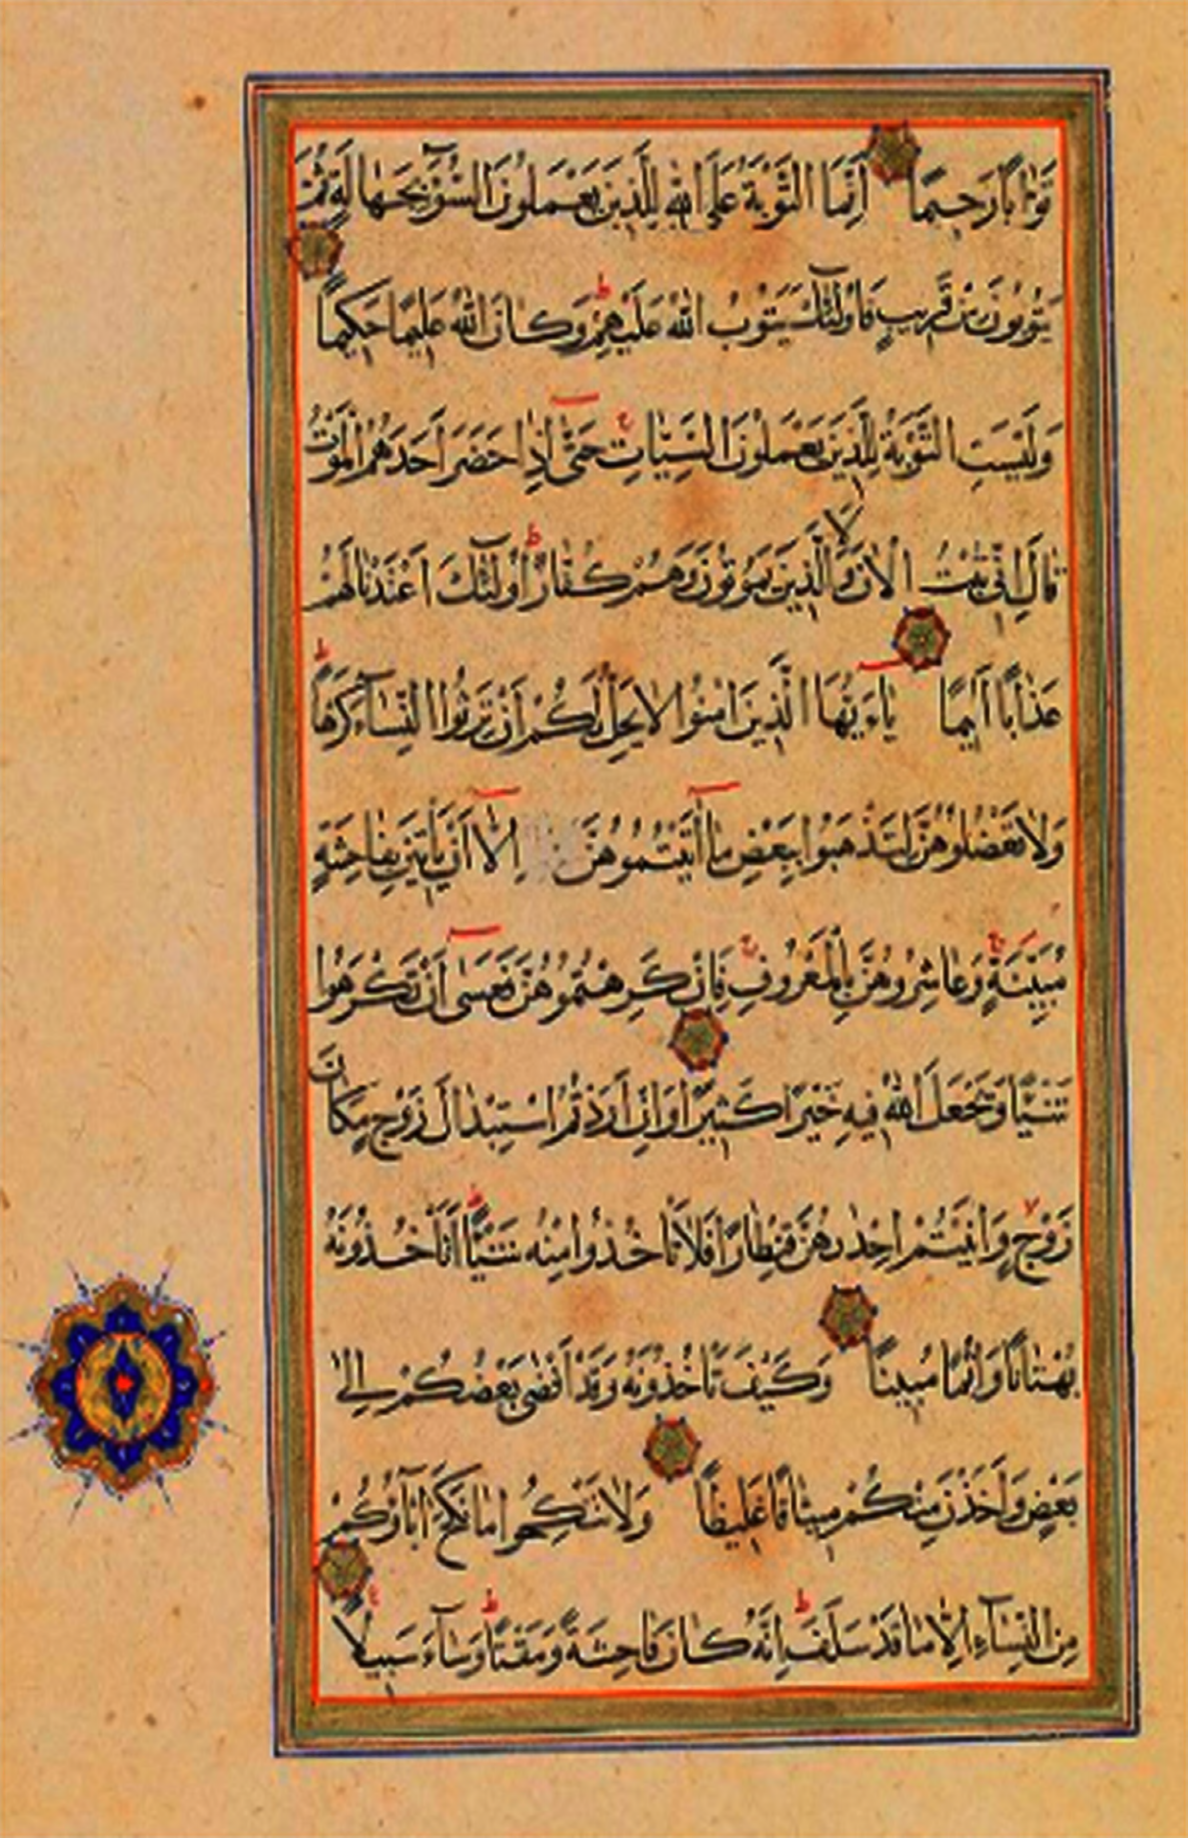 تَوَّابًا رَحِيمًا اِنَّمَا التَّوْبَةُ عَلَى اللهِ لِلَّذِينَ يَعْمَلُونَ السُّوٓءَ بِجَهَالَةٍ ثُمَّ
يَتُوبُونَ مِنْ قَرِيبٍ فَاُولٰٓئِكَ يَتُوبُ اللهُ عَلَيْهِمْ وَكَانَ اللهُ عَلِيمًا حَكِيمًا
وَلَيْسَتِ التَّوْبَةُ لِلَّذِينَ يَعْمَلُونَ السَّيِّاٰتِ حَتّٰى اِذَا حَضَرَ اَحَدَهُمُ الْمَوْتُ
قَالَ اِنِّى تُبْتُ الْاٰنَ وَلَا الَّذِينَ يَمُوتُونَ وَهُمْ كُفَّارٌ اُولٰٓئِكَ اَعْتَدْنَا لَهُمْ
عَذَابًا اَلِيمًا يَاءَيُّهَا الَّذِينَ اٰمَنُوا لَا يَحِلُّ لَكُمْ اَنْ تَرِثُوا النِّسَآءَ كَرْهًا
وَلَا تَعْضُلُوهُنَّ لِتَذْهَبُوا بِبَعْضِ مَا اٰتَيْتُمُوهُنَّ اِلَّا اَنْ يَاْتِينَ بِفَاحِشَةٍ
مُبَيِّنَةٍ وَعَاشِرُوهُنَّ بِالْمَعْرُوفِ فَاِنْ كَرِهْتُمُوهُنَّ فَعَسٰى اَنْ تَكْرَهُوا
شَيْئًا وَيَجْعَلَ اللهُ فِيهِ خَيْرًا كَثِيرًا وَاِنْ اَرَدْتُمُ اسْتِبْدَالَ زَوْجٍ مَكَانَ
زَوْجٍ وَاٰتَيْتُمْ اِحْدٰىهُنَّ قِنْطَارًا فَلَا تَاْخُذُوا مِنْهُ شَيْئًا اَتَاْخُذُونَهُ
بُهْتَانًا وَاِثْمًا مُبِينًا وَكَيْفَ تَاْخُذُونَهُ وَقَدْ اَفْضٰى بَعْضُكُمْ اِلٰى
بَعْضٍ وَاَخَذْنَ مِنْكُمْ مِيثَاقًا غَلِيظًا وَلَا تَنْكِحُوا مَا نَكَحَ اٰبَآؤُكُمْ
مِنَ النِّسَآءِ اِلَّا مَا قَدْ سَلَفَ اِنَّهُ كَانَ فَاحِشَةً وَمَقْتًا وَسَآءَ سَبِيلًا